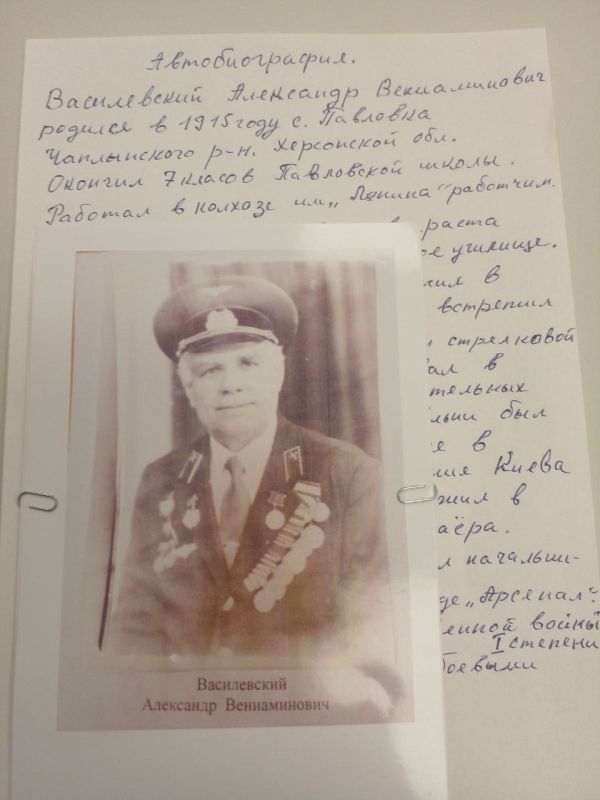 Автобиография.
Василевский Александр Вениаминович
родился в 1915 году с. Павловка
Чаплынского р-н. Херсонской обл.
Окончил 7 класов Павловской школы.
Работал в колхозе им „Ленина" работчим.
раста
ое училище.
ил в
встретил
стрелковой
ал в
тельных
был
е в
ия Киева
жил в
аёра.
л начальни-
де „Арсенал".
енной войны
I степени
боевыми
Василевский
Александр Вениаминович